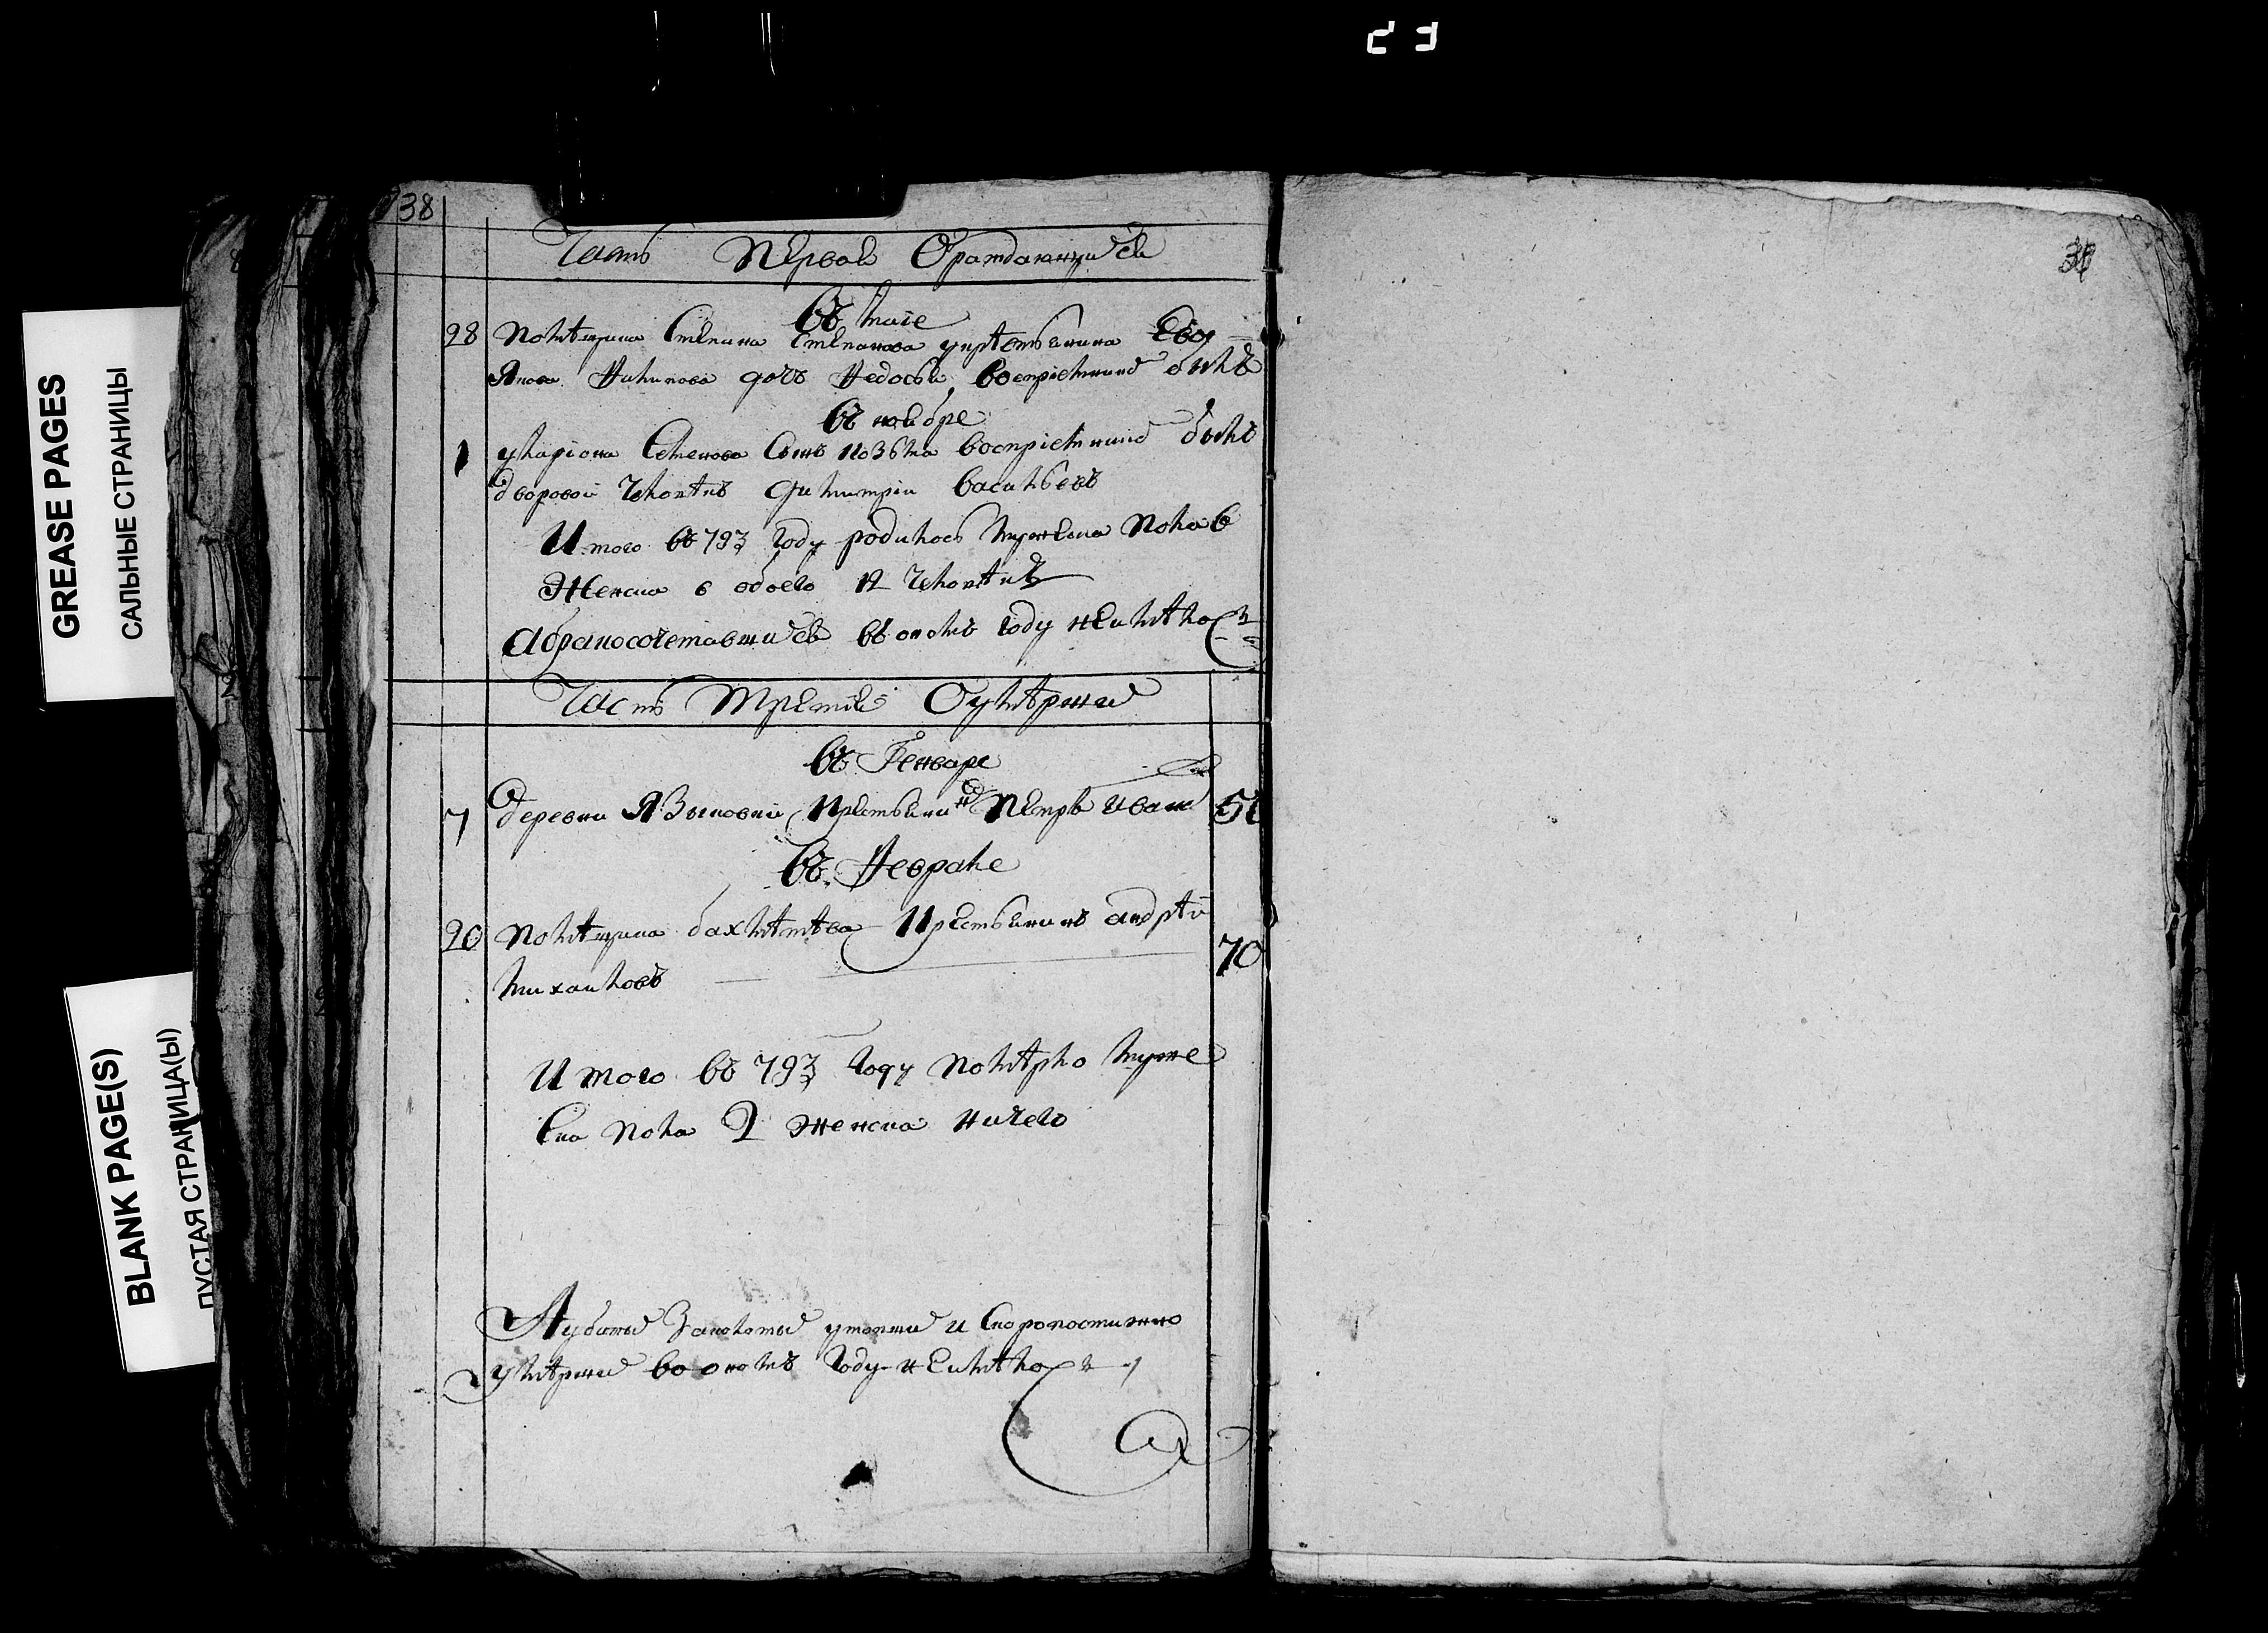 38
Часть Первая Ораждающихся
въ маie
28 помѣщика Степана Степанова укрѣстьянина
Якова дочь Федосья воспрiемник былъ
въ ноябре
1 уларiона Семенова сынъ козьма воспрiемник былъ
дворовой человѣкъ димитрiи васильевъ
Итого въ 793 году родилось мужеска пола 6
женска 6 обоего 12 человѣкъ
Абракосочетавшихся въ ономъ году неимѣло
Часть Третiя Оумѣрших
въ Генваре
7 деревни Крестьянин Петръ Иванов
въ Феврале
20 помѣщика бахмѣтева Крестьянинъ андрѣй 70
михаиловъ
Итого въ 793 году помѣрло муже
ска пола 2 женска ничего
Аубитых Заколотых утопших и Скоропостижно
умѣрших во ономъ году неимѣло
GREASE PAGES
САЛЬНЫЕ СТРАНИЦЫ
BLANK PAGE(S)
ПУСТАЯ СТРАНИЦА(Ы)